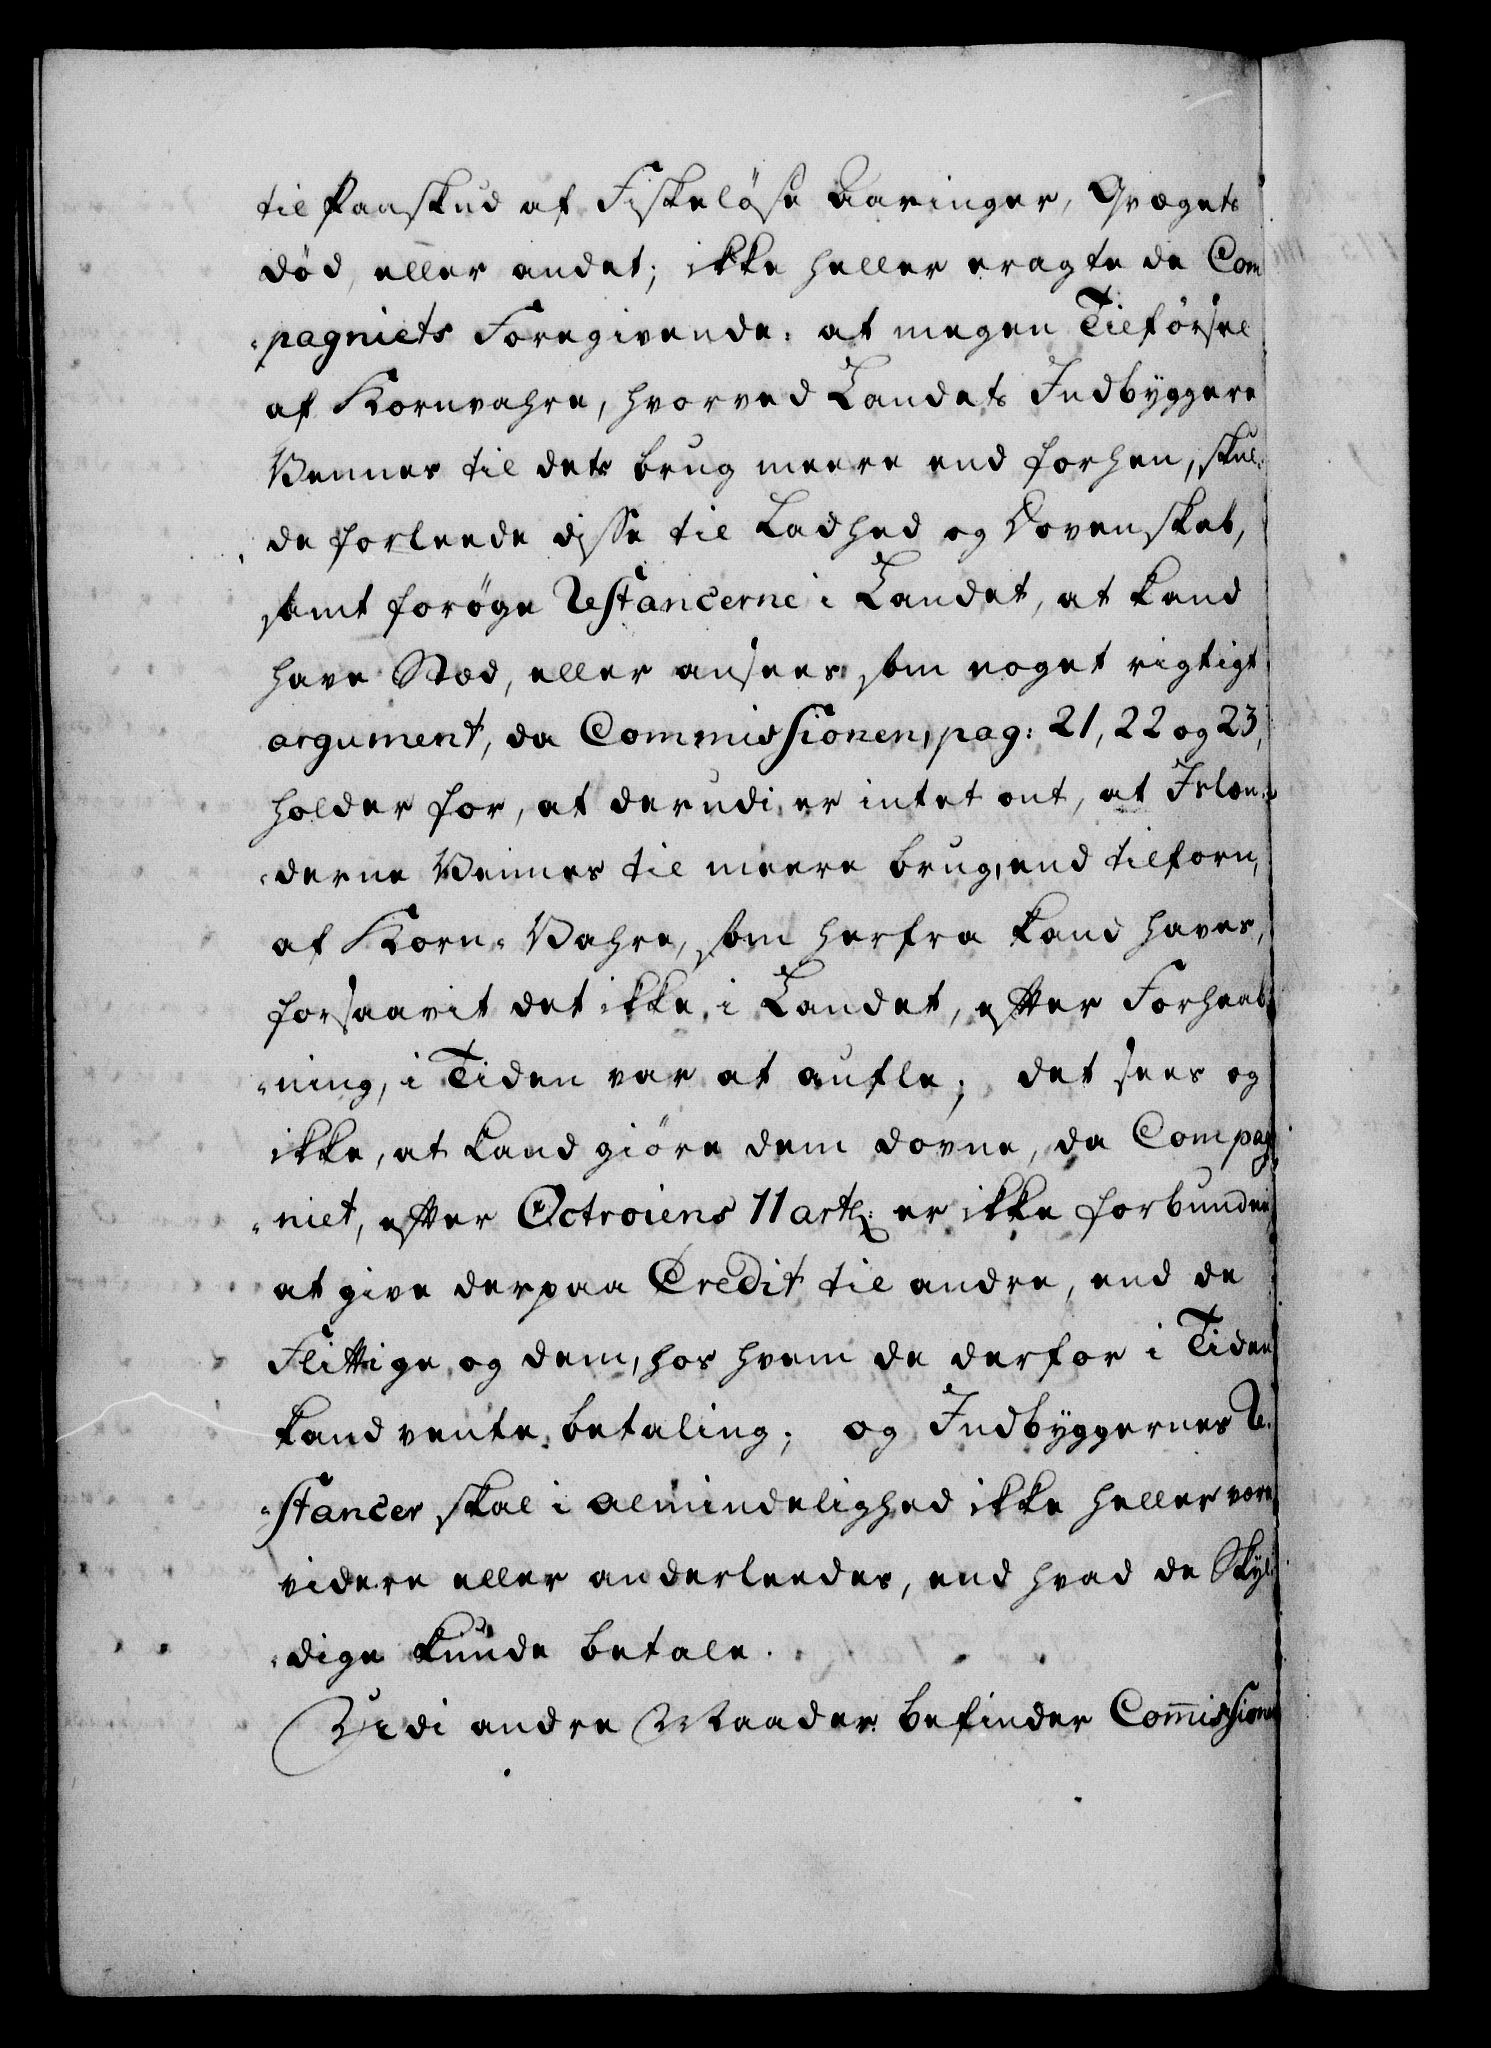 til Paaskud af Fiskelöse Aaringer, Qvægets
död, eller andet; ikke heller eragte de Com
-pagniets Foregivende: at megen Tilförsel
af Kornvahre, hvorved Landets Indbyggere
Vennes til dets brug meere end forhen, skul-
de forleede disse til Ladhed og Dovenskab,
samt foröge Restancerne i Landet, at kand
have Stæd, eller ansees som noget rigtigt
argument, da Commissionen, pag: 21, 22 og 23,
holder for, at derudi er intet ont, at Islæn-
-derne Vennes til meere brug, end tilforn,
af Korn-Vahre, som herfra kand haves,
forsaavit det ikke i Landet, efter Forhaab-
-ning, i Tiden var at aufle; det sees og
ikke, at kand giöre dem dovne, da Compag
-niet, efter Octroiens 11 artl: er ikke forbunden
at give derpaa Credit til andre, end de
Flittige og dem, hos hvem de derfor i Tiden
kand vente betaling; og Indbyggernes Re-
-stancer skal i almindelighed ikke heller være
videre eller anderleedes, end hvad de Skyl-
-dige kunde betale.
Udi andre Maader befinder Com̄issionen